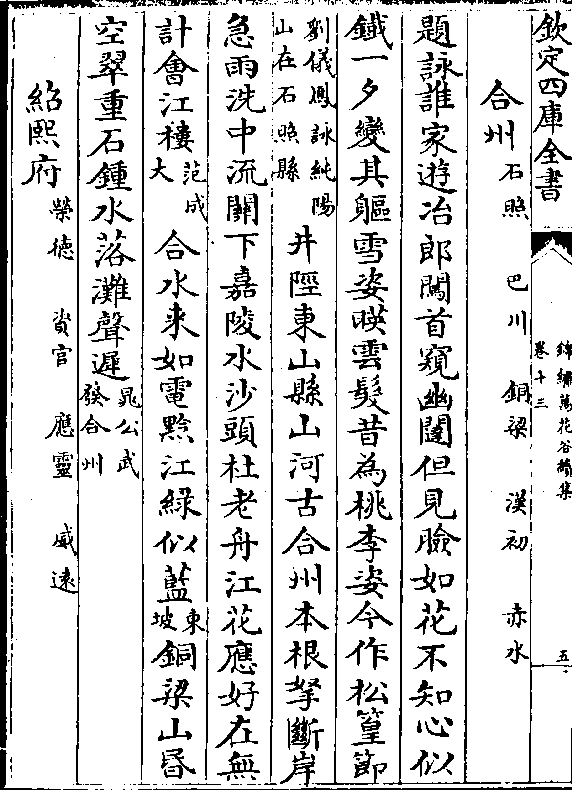 欽定四庫全書
錦繡萬花谷續集
卷十三
五
合州石照 巴川 銅梁 漢初 赤水
題詠誰家遊冶郎闖首窺幽闥但見臉如花不知心似
鐵一夕變其軀雪姿暎雲髮昔為桃李姿今作松篁節
劉儀鳳詠純陽
山在石照縣
井陘東山縣山河古合州本根拏斷岸
急雨洗中流關下嘉陵水沙頭杜老舟江花應好在無
計會江樓范成
大
合水来如電黔江綠似藍東
坡
銅梁山昏
空翠重石鍾水落灘聲遲晁公武
發合州
紹熙府榮德 資官 應靈 威遠